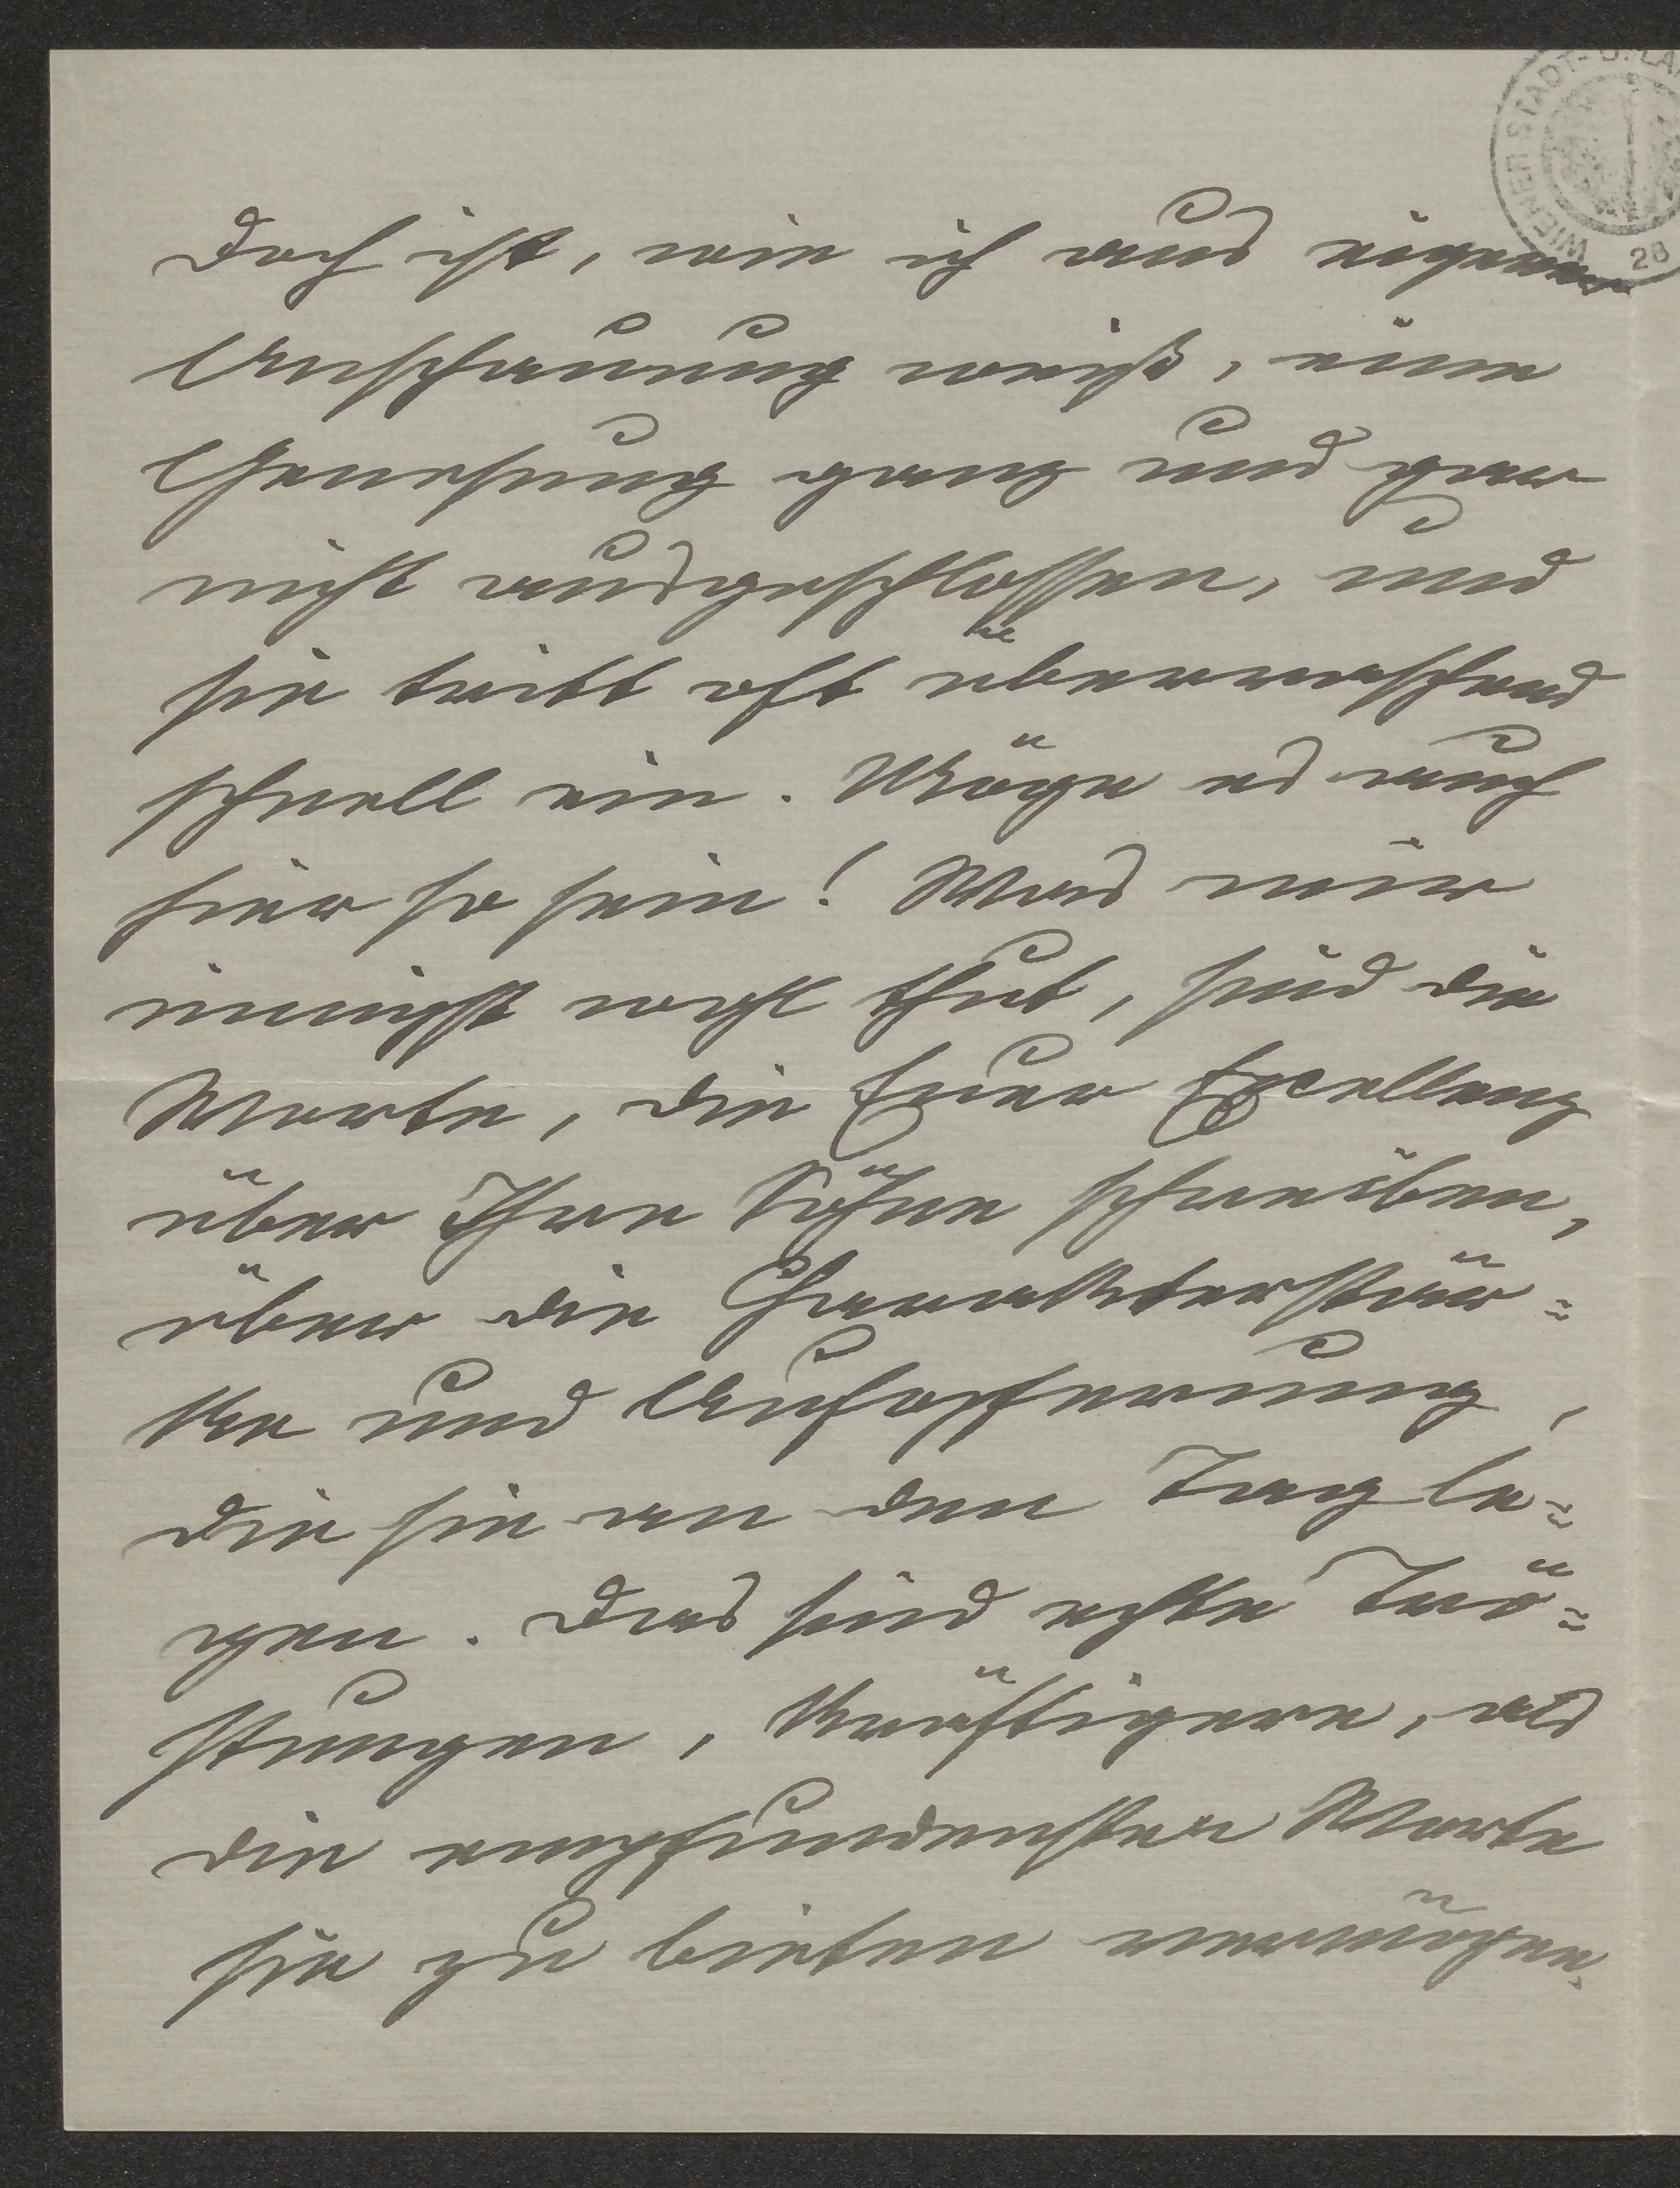 WIENER STADT- U. LA
28
Doch ist, wie ich aus eigener
Anschauung weiß, eine
Genesung ganz und gar
nicht ausgeschlossen, und
sie tritt oft überraschend
schnell ein. Möge es auch
hier so sein! Was mir
innigst wohl thut, sind die
Worte, die Euer Excellenz
über Ihre Söhne schreiben,
über die Charakterstär=
ke und Aufopferung,
die sie an den Tag le=
gen. Das sind echte Trö=
stungen, kräftigere, als
die empfundensten Worte
sie zu bieten vermögen.